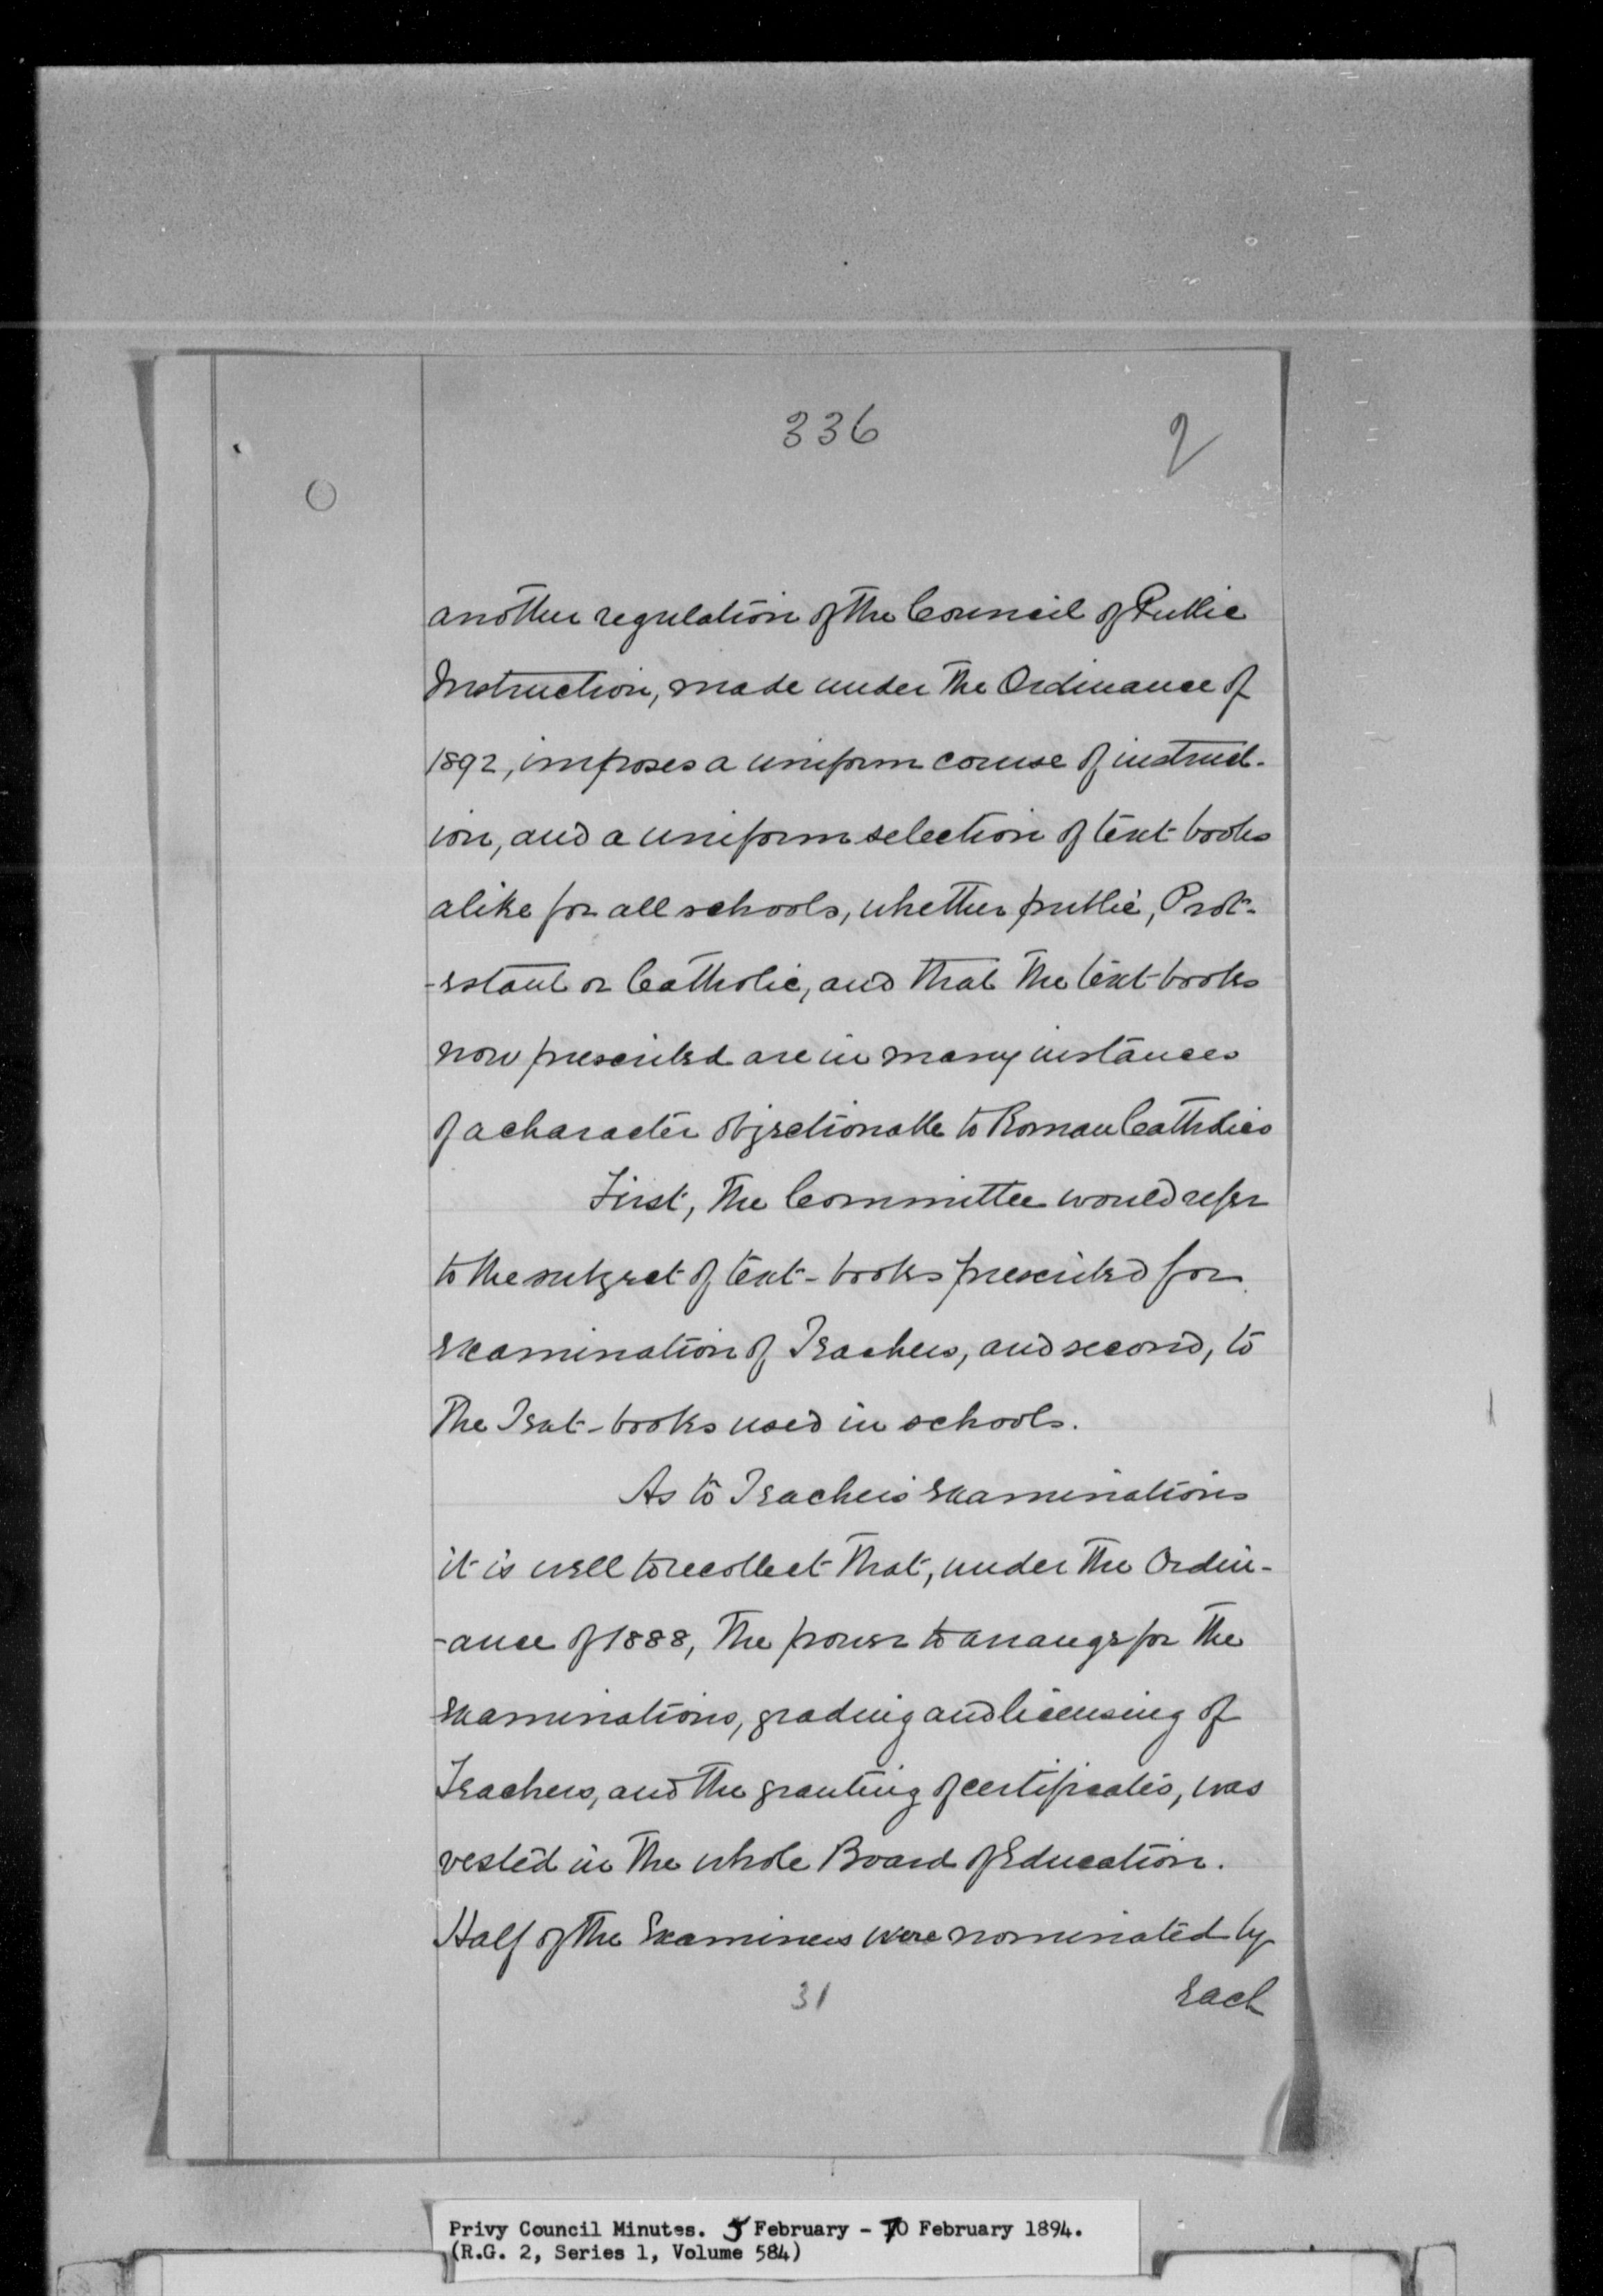 336
2
another regulation of the Council of Public
Instruction, made under the Ordinance of
1892, imposes a uniform course of instruct-
ion, and a uniform selection of text books
alike for all schools, whether public, Prot-
-estant or Catholic, and that the text-books
now prescribed are in many instances
of a character objectionable to Roman Catholics
First, the Committee would refer
to the subject of text-books prescribed for
examination of Teachers, and second, to
the Text-books used in schools.
As to Teachers' examinations
it is well to recollect that, under the Ordin-
-ance of 1888, the power to arrange for the
examinations, grading and licensing of
Teachers, and the granting of certificates, was
vested in the whole Board of Education.
Half of the Examiners were nominated by
each
31
Privy Council Minutes. 5 February - 10 February 1894.
(R.G. 2, Series 1, Volume 584)